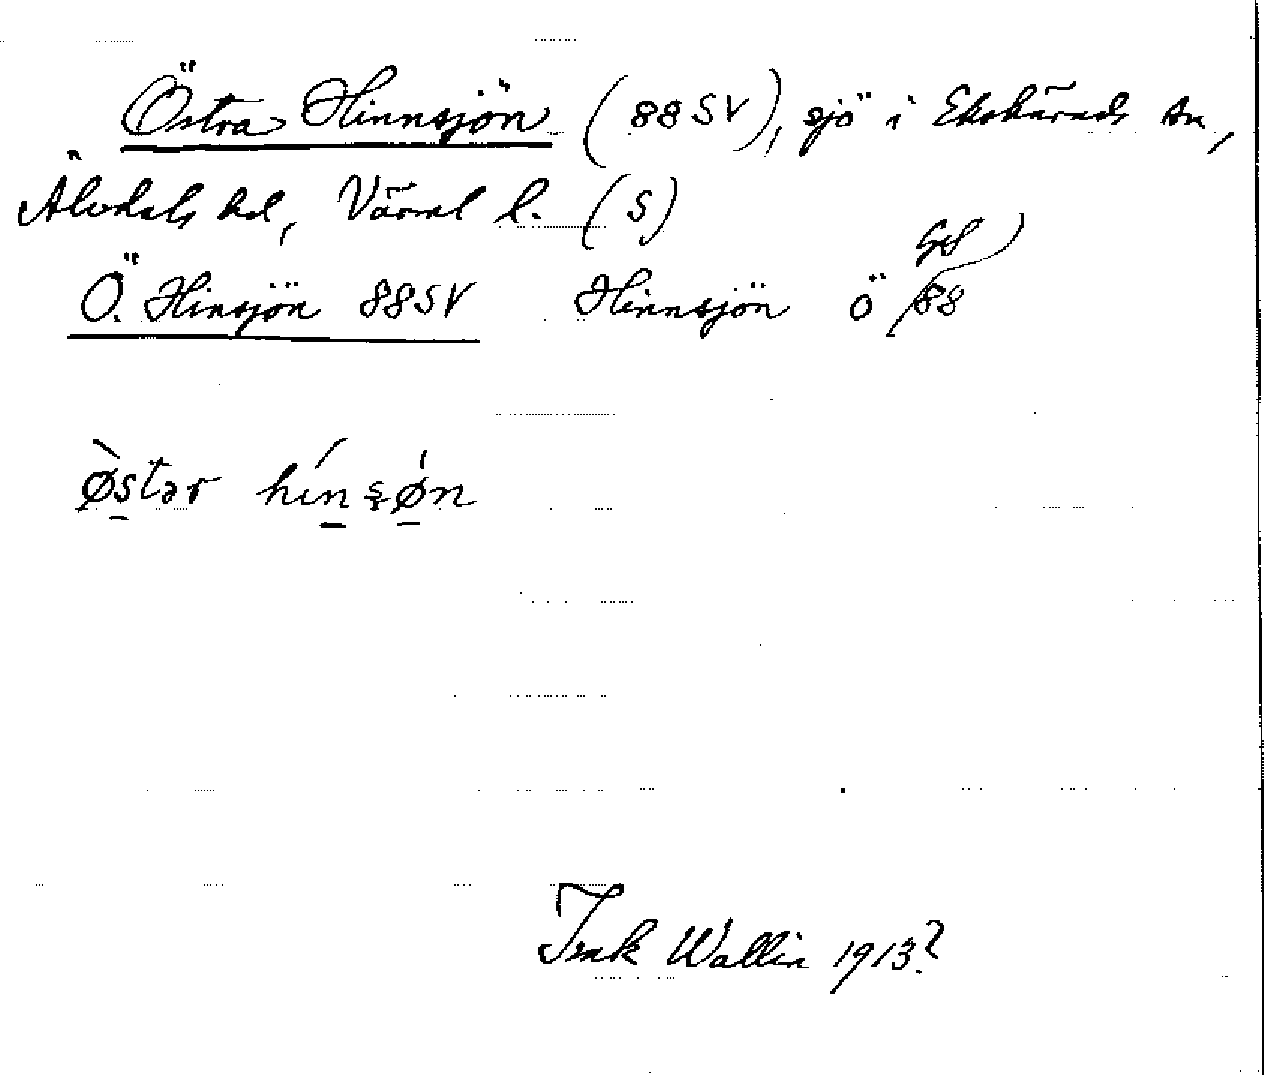 Östra Hinnsjön (88SV), sjö i Ekshärads sn,
Älvdals hd, Värml l. (S)
Ö. Hinsjön 88SV Hinnsjön Ö 88 GS)
østər hinsøn
Isak Wallin 1913?